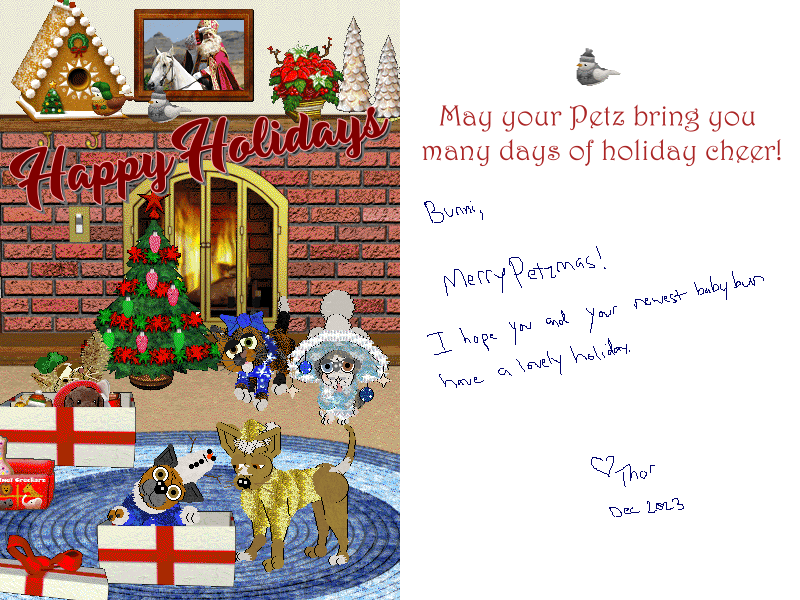 Happy Holidays
Animal Crackers
May your Petz bring you
many days of holiday cheer!
Bunni,
Merry Petzmas!
I hope you and your newest baby bun
have a lovely holiday.
♡ Thor
Dec 2023